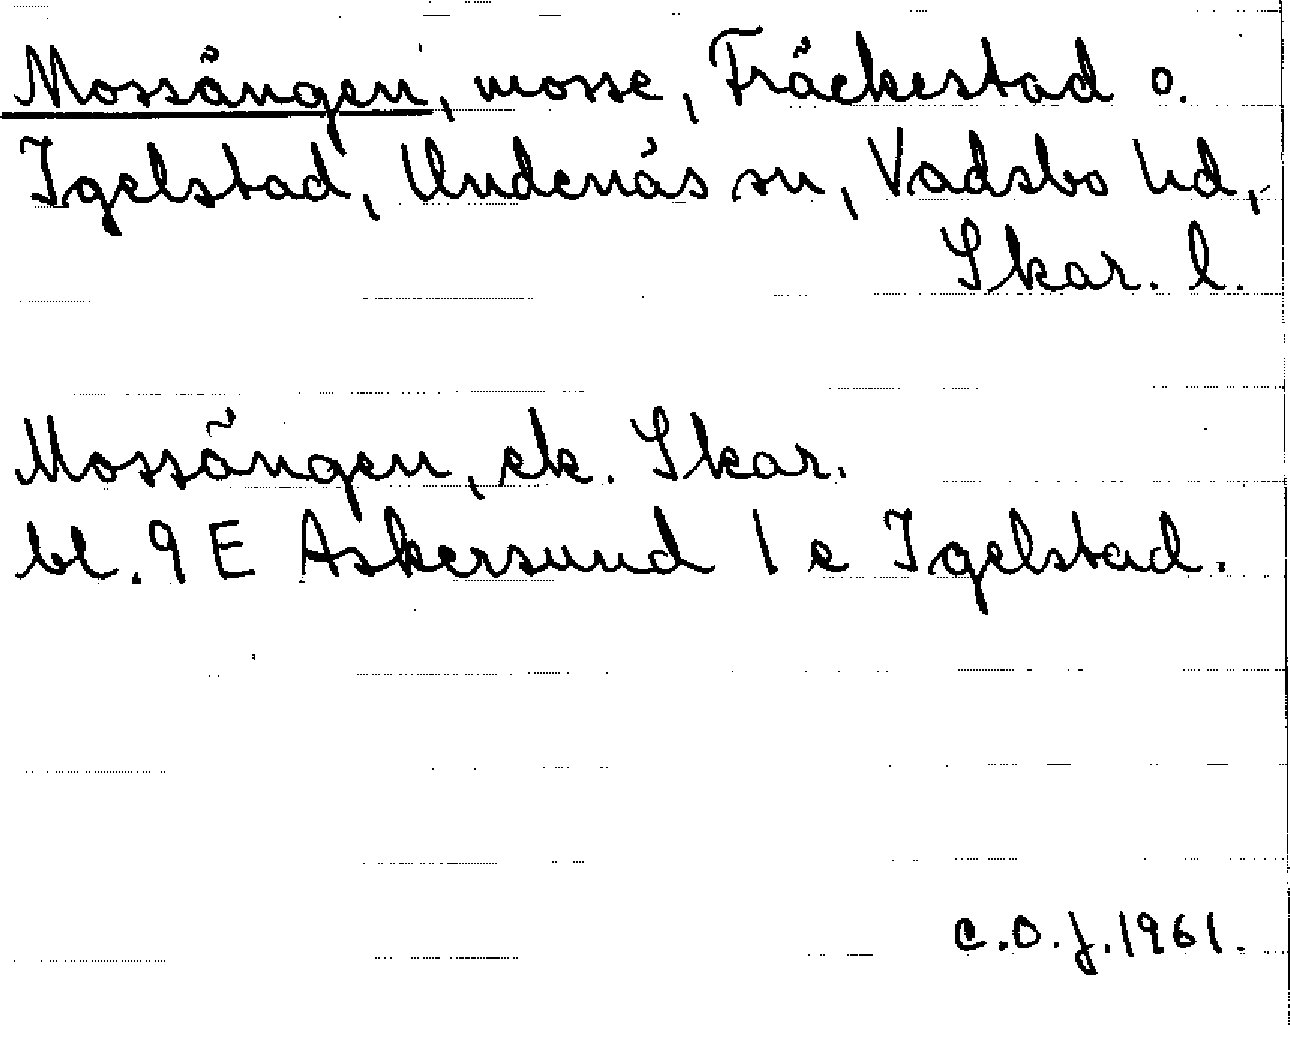 Mossängen, mosse, Fräckestad o.
Igelstad, Undenäs sn, Vadsbo hd,
Skar. l.
Mossängen, ek. Skar.
bl. 9 E Askersund 1 e Igelstad.
C.O.J. 1961.